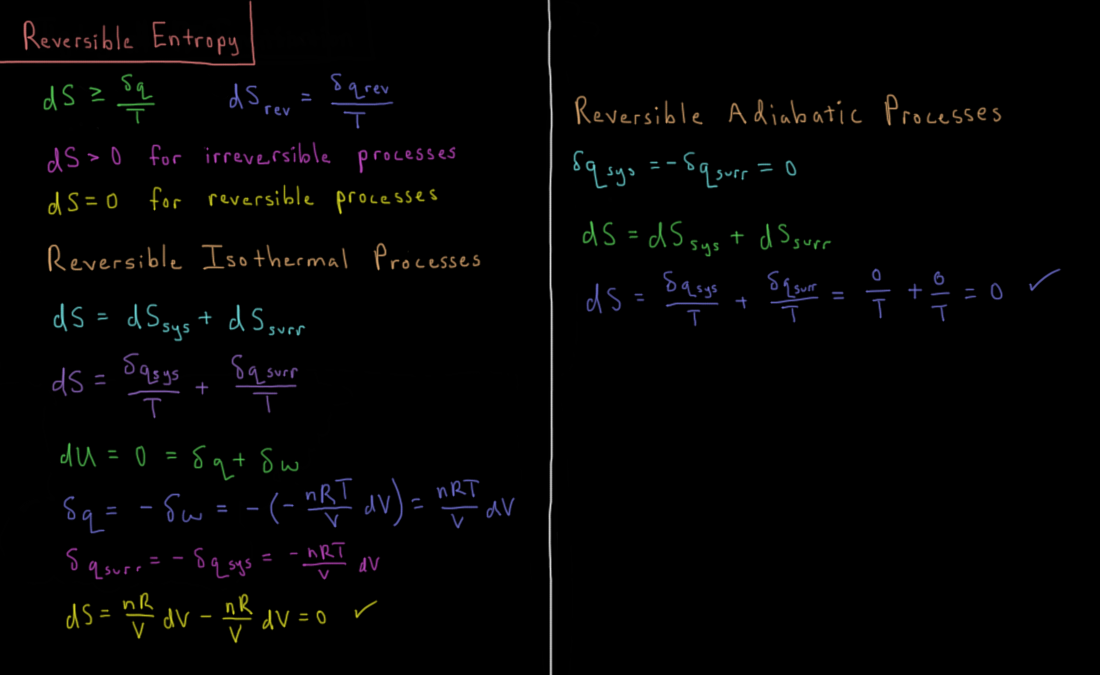 Reversible Entropy
dS ≥ δq/T    dS_rev = δq_rev/T
dS > 0 for irreversible processes
dS = 0 for reversible processes
Reversible Isothermal Processes
dS = dS_sys + dS_surr
dS = δq_sys/T + δq_surr/T
dU = 0 = δq + δw
δq = -δw = -(-nRT/V dV) = nRT/V dV
δq_surr = -δq_sys = -nRT/V dV
dS = nR/V dV - nR/V dV = 0 ✓
Reversible Adiabatic Processes
δq_sys = -δq_surr = 0
dS = dS_sys + dS_surr
dS = δq_sys/T + δq_surr/T = 0/T + 0/T = 0 ✓